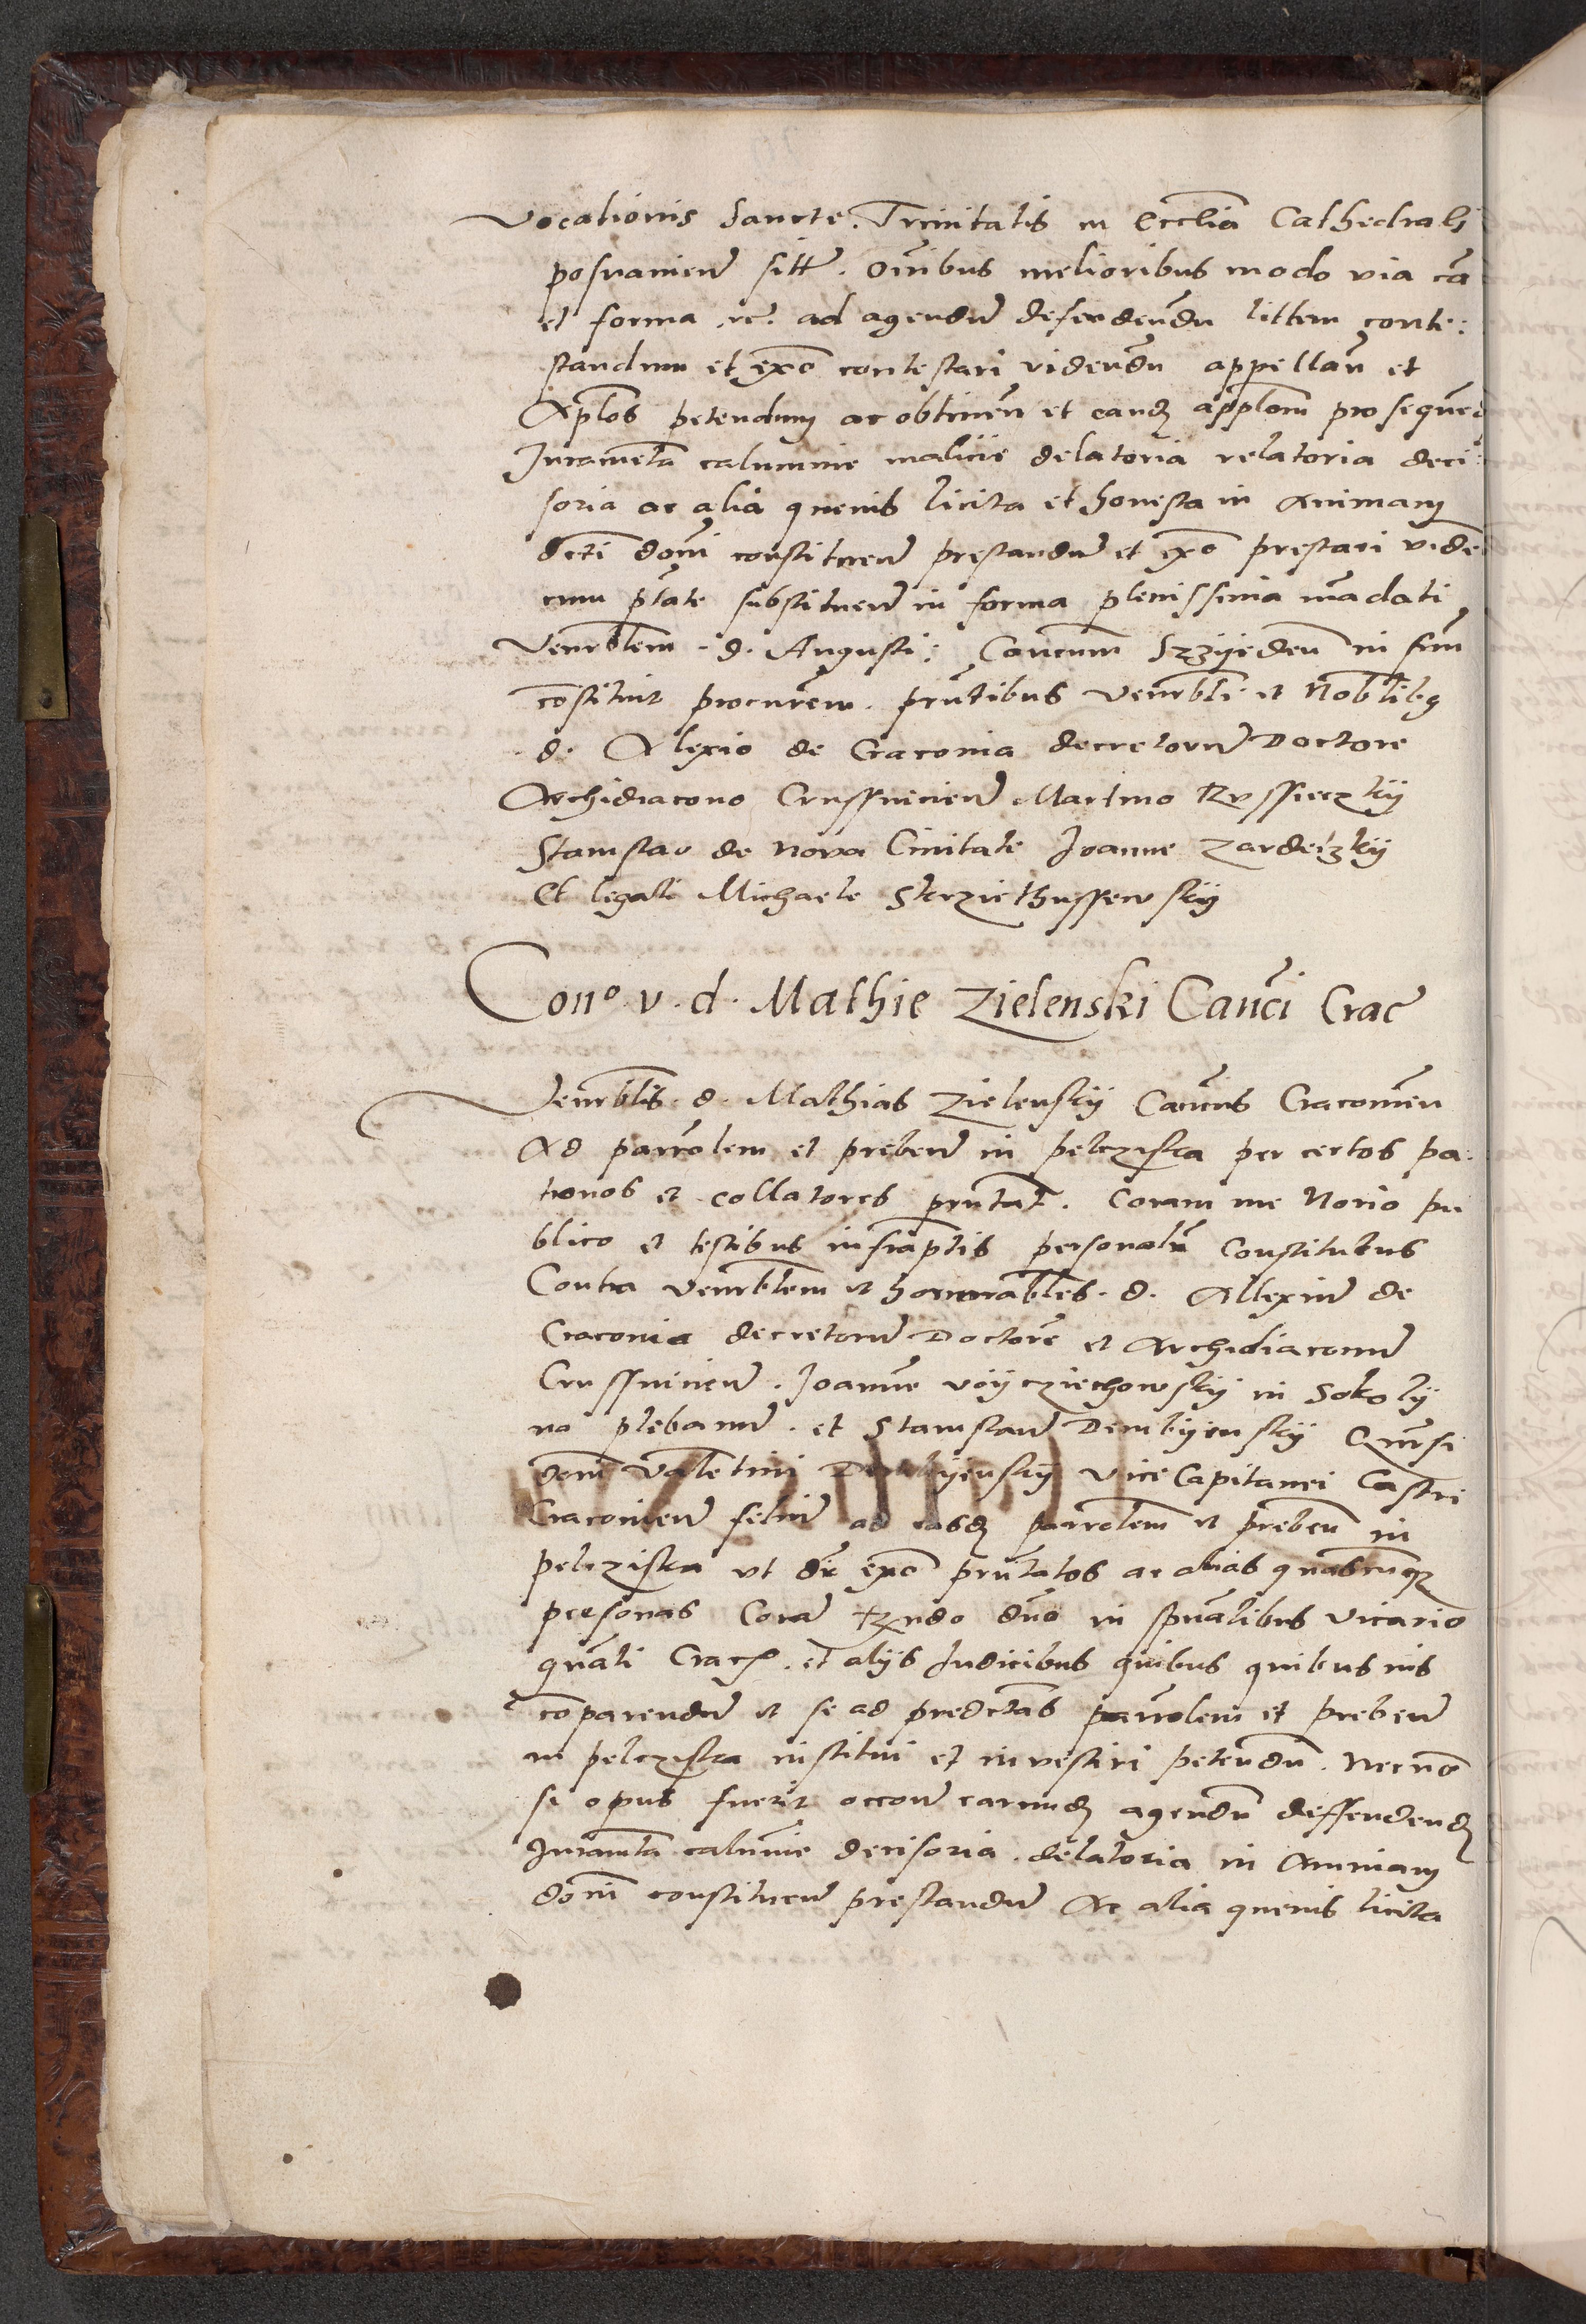 Vocationis Sancte Trinitatis in Ecclia Cathedrali
posnanien sitt. Omibus melioribus modo via ca
et forma rc. ad agendu defendendu littem conte:
standum et exo contestari videndu appellan et
Aplos petendum ac obtinen et eand applom prosequend
Iuramenta calumnie malicie delatoria relatoria deci:
soria ac alia quevis licita et honesta in Animam
dicti domi constituen prestandu et exo prestari vide
cum ptate substituen in forma plenissima madati
Venerblem d. Augusti: Cancum in sum
costituit procurem. pntibus venerbli et Nobilibus
d. Alexio de Cracovia decretoru Doctore
Archidiacono Crusswicien Martino
Stanislao de Nova Civitate Joanne Zardeczky
Et legali Michaele
Con° v. d. Mathie Zielenski Canci Crac
Venerblis d. Mathias Zielensky Cancus Cracovien
Ad parrolem et preben in pelcziska per certos pa
tronos et collatores pntat. Coram me Norio pu
blico et testibus infraptis personalr Constitutus
Contra venerblem et honorabiles. d. Allexiu de
Cracovia decretoru Doctore et Archidiaconu
Crusswicien. Joanne Woycziechowsky in Sokoly
no plebanu. et Stanislau Dembyensky
domi Valetini Dembyensky Vice Capitanei Castri
Cracovien filiu ad easd parrolem et preben in
pelcziska ut dr exo pntatos ac alias quascunqz
personas Cora Rndo dno in spualibus Vicario
gnali Crac. et alijs Iudicibus quibus quibusvis
comparendu et se ad predictas parrolem et preben
in pelcziska institui et investiri petendu. Necno
si opus fuerit occone earund agendu deffendend
Iuramta calunie decisoria. delatoria in Animam
domi constituen prestandu Ac alia quevis licita